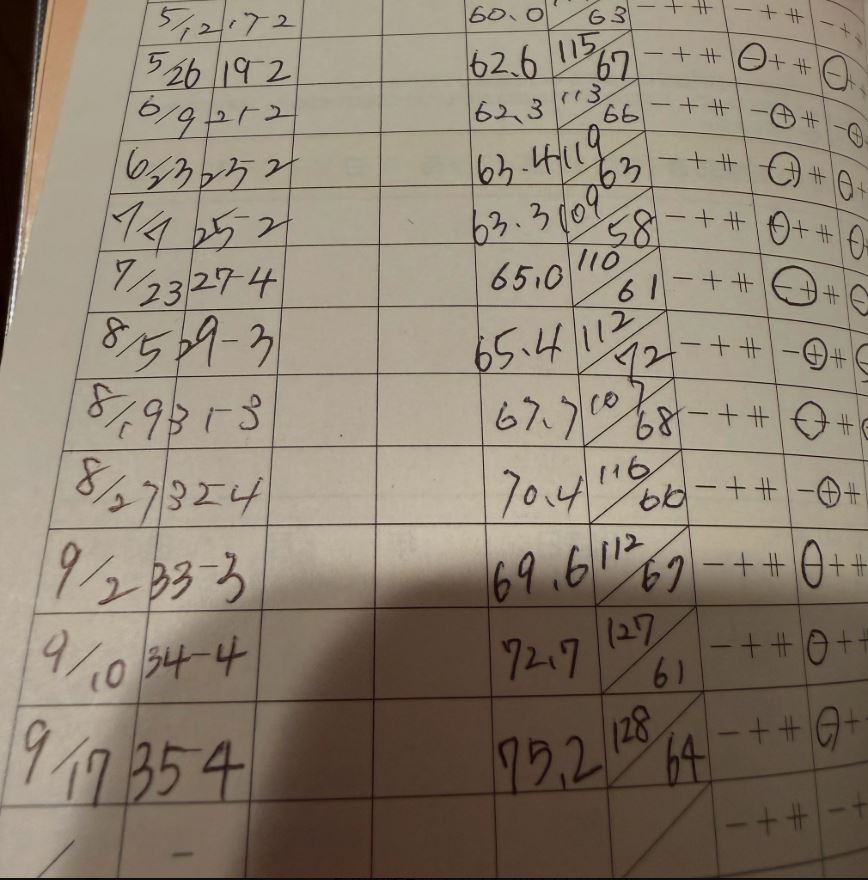 5/12 17-2 60.0 63 - + ⧺ - + ⧺ - +
5/26 19-2 62.6 115/67 - + ⧺ - + ⧺ - +
6/9 21-2 62.3 113/66 - + ⧺ - + ⧺ - +
6/23 23-2 63.4 119/63 - + ⧺ - + ⧺ - +
7/7 25-2 63.3 109/58 - + ⧺ - + ⧺ -
7/23 27-4 65.0 110/61 - + ⧺ - + ⧺ -
8/5 29-3 65.4 112/72 - + ⧺ - + ⧺
8/19 31-3 67.7 107/68 - + ⧺ - + ⧺
8/27 32-4 70.4 116/66 - + ⧺ - + ⧺
9/2 33-3 69.6 112/67 - + ⧺ - + ⧺
9/10 34-4 72.7 127/61 - + ⧺ - + +
9/17 35-4 75.2 128/64 - + ⧺ - +
/ - / - + ⧺ - +